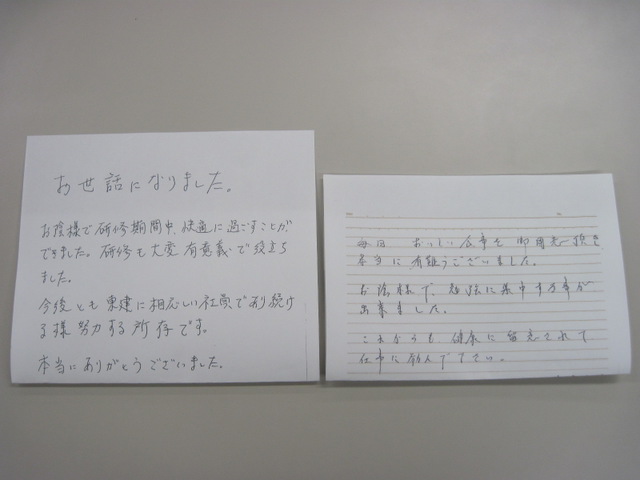 お世話になりました。
お陰様で研修期間中、快適に過ごすことが
できました。研修も大変有意義で役立ち
ました。
今後とも東建に相応しい社員であり続け
る様努力する所存です。
本当にありがとうございました。
毎日 おいしい食事を御用意頂き
本当に有難うございました。
お陰様で、勉強に集中する事が
出来ました。
これからも健康に留意されて
仕事に励んで下さい。